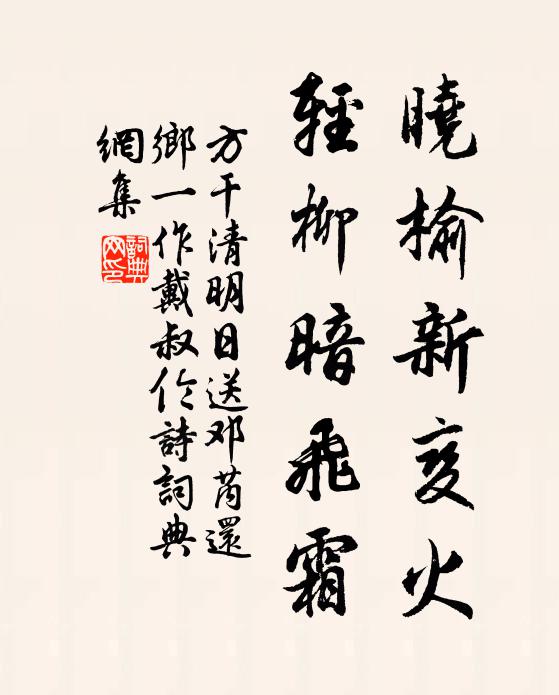 曉榆新变火
輕柳暗飛霜
方干清明日送邓芮還
鄉一作戴叔伦詩詞典
網集
詞典
网印